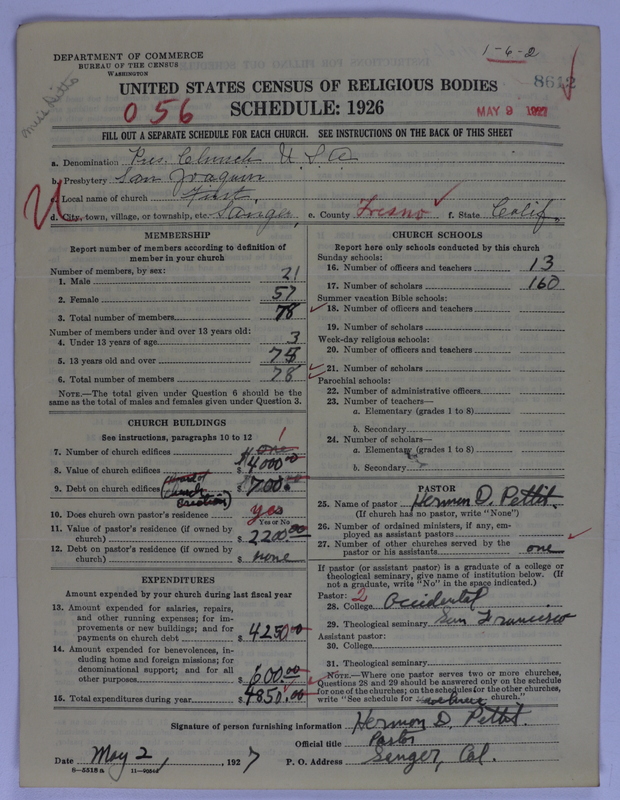 1-6-2
DEPARTMENT OF COMMERCE
BUREAU OF THE CENSUS
WASHINGTON
8612
UNITED STATES CENSUS OF RELIGIOUS BODIES
056
SCHEDULE: 1926
MAY 9 1927
FILL OUT A SEPARATE SCHEDULE FOR EACH CHURCH. SEE INSTRUCTIONS ON THE BACK OF THIS SHEET
a. Denomination Pres. Church U.S.A
b. Presbytery San Joaquin
c. Local name of church First,
d. City, town, village, or township, etc. Sanger, e. County Fresno f. State Calif.
MEMBERSHIP
Report number of members according to definition of
member in your church
Number of members, by sex:
1. Male 21
2. Female 57
3. Total number of members 78
Number of members under and over 13 years old:
4. Under 13 years of age 3
5. 13 years old and over 75
6. Total number of members 78
NOTE.—The total given under Question 6 should be
same as the total of males and females given under Question 3.
CHURCH BUILDINGS
See instructions, paragraphs 10 to 12
7. Number of church edifices one 1
8. Value of church edifices $ 14000.00
9. Debt on church edifices (Board of Church Erection) $ 700.00
10. Does church own pastor's residence? yes
Yes or No
11. Value of pastor's residence (if owned by
church) $ 2200.00
12. Debt on pastor's residence (if owned by
church) $ none
EXPENDITURES
Amount expended by your church during last fiscal year
13. Amount expended for salaries, repairs,
and other running expenses; for im-
provements or new buildings; and for
payments on church debt $ 4250.00
14. Amount expended for benevolences, in-
cluding home and foreign missions; for
denominational support; and for all
other purposes $ 600.00
15. Total expenditures during year $ 4850.00
CHURCH SCHOOLS
Report here only schools conducted by this church
Sunday schools:
16. Number of officers and teachers 13
17. Number of scholars 160
Summer vacation Bible schools:
18. Number of officers and teachers
19. Number of scholars
Week-day religious schools:
20. Number of officers and teachers
21. Number of scholars
Parochial schools:
22. Number of administrative officers
23. Number of teachers—
a. Elementary (grades 1 to 8)
b. Secondary
24. Number of scholars—
a. Elementary (grades 1 to 8)
b. Secondary
PASTOR
25. Name of pastor Hermon D. Pettit.
(If church has no pastor, write "None")
26. Number of ordained ministers, if any, em-
ployed as assistant pastors
27. Number of other churches served by the
pastor or his assistants one
If pastor (or assistant pastor) is a graduate of a college or
theological seminary, give name of institution below. (If
not a graduate, write "No" in the space indicated.)
Pastor: 2
28. College Occidental
29. Theological seminary San Francisco
Assistant pastor:
30. College
31. Theological seminary
NOTE.—Where one pastor serves two or more churches,
Questions 28 and 29 should be answered only on the schedule
for one of the churches; on the schedules for the other churches,
write "See schedule for church."
Signature of person furnishing information Hermon D. Pettit.
Official title Pastor
Date May 2, 1927 P. O. Address Sanger, Cal.
8—5518a 11—9054